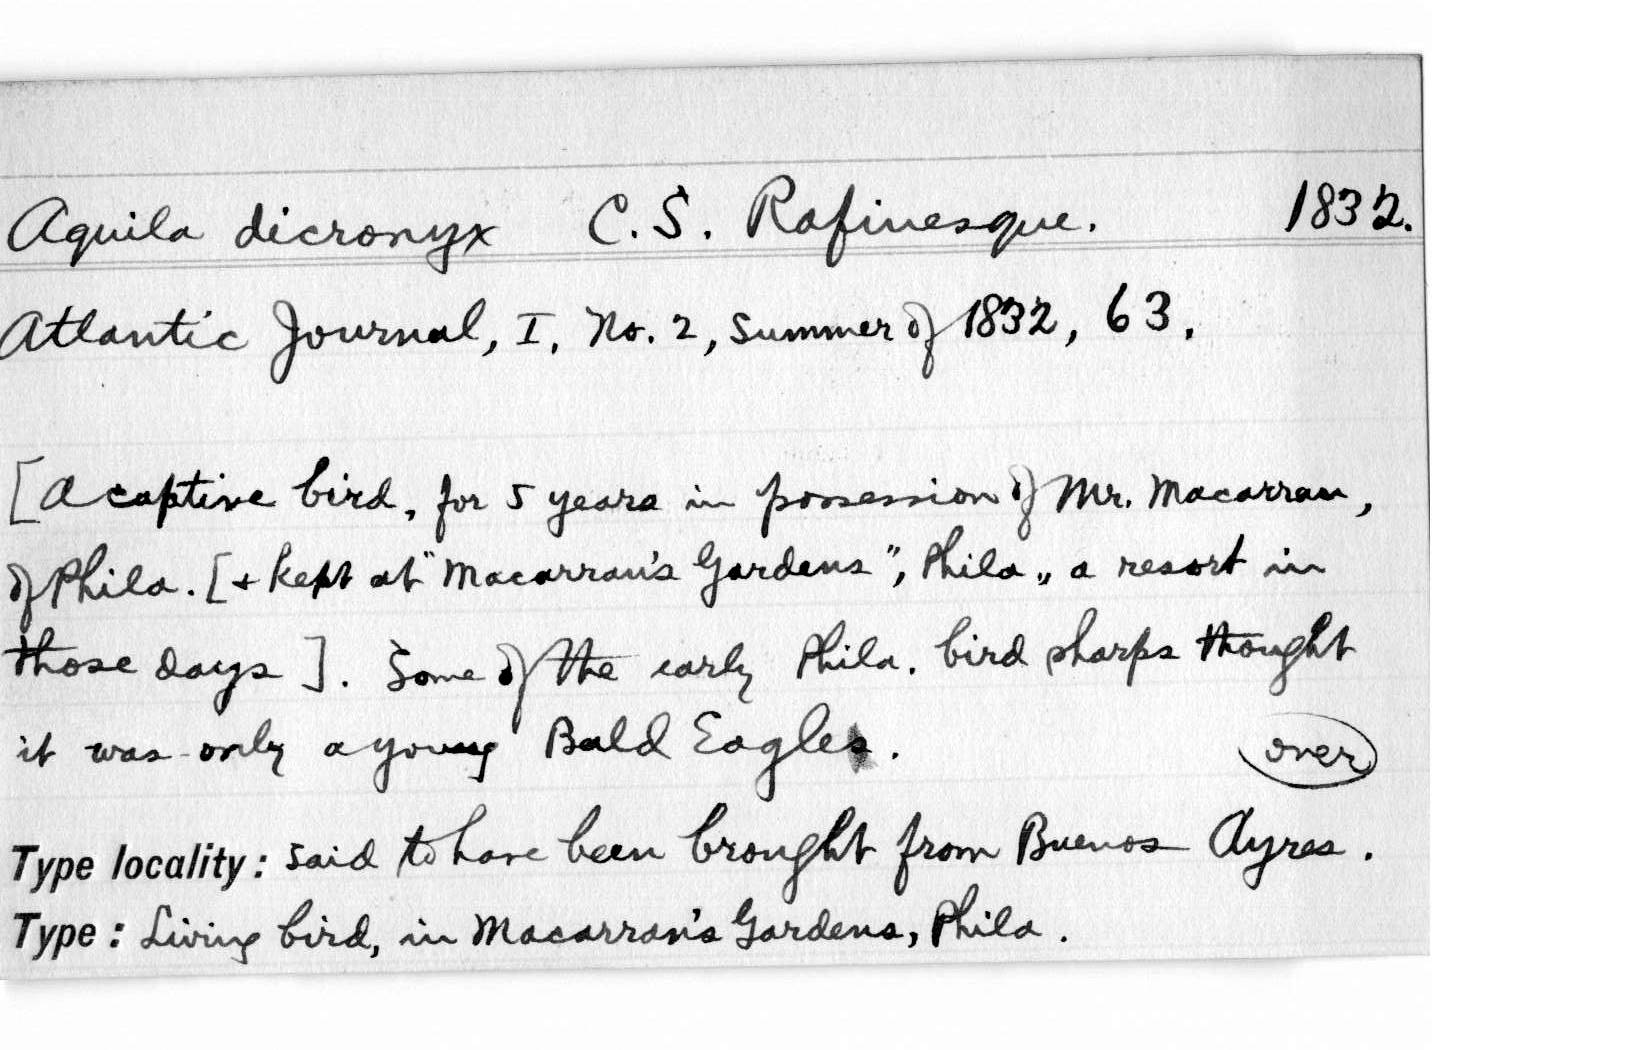 Aquila dicronyx C. S. Rafinesque. 1832.
Atlantic Journal, I, No. 2, Summer of 1832, 63.
[A captive bird, for 5 years in possession of Mr. Macarran,
of Phila. [+ kept at "Macarran's Gardens", Phila., a resort in
those days]. Some of the early Phila. bird sharps thought
it was only a young Bald Eagle.
over
Type locality: Said to have been brought from Buenos Ayres.
Type: Living bird, in Macarran's Gardens, Phila.